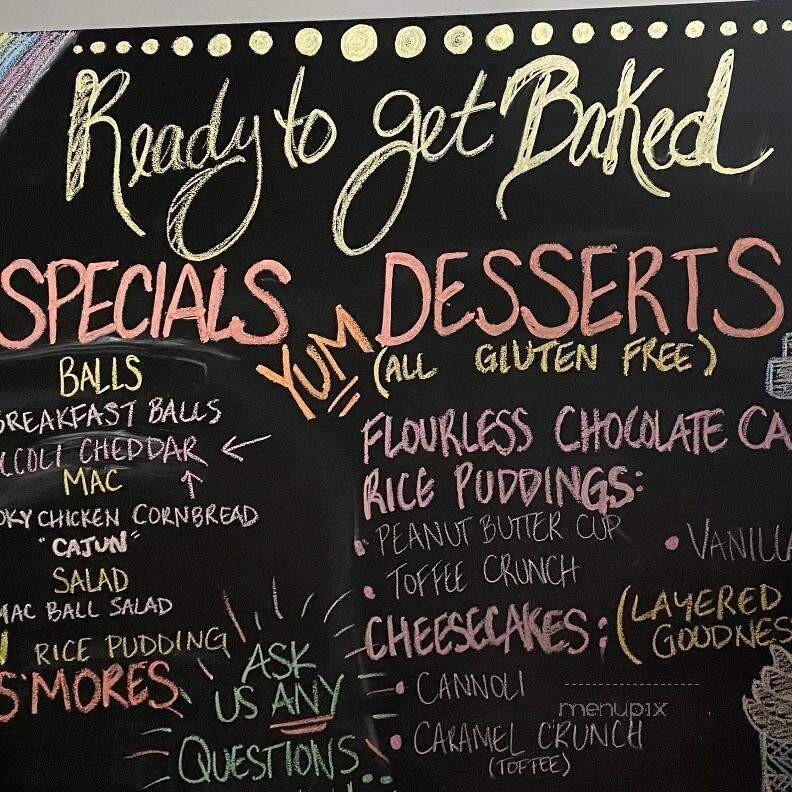 Ready to get Baked
SPECIALS
BALLS
BREAKFAST BALLS
CCOLI CHEDDAR ←
MAC ↑
OKY CHICKEN CORNBREAD
"CAJUN"
SALAD
MAC BALL SALAD
RICE PUDDING
S'MORES
YUM
ASK
US ANY
QUESTIONS
DESSERTS
(ALL GLUTEN FREE)
FLOURLESS CHOCOLATE CA
RICE PUDDINGS:
• PEANUT BUTTER CUP • VANILLA
• TOFFEE CRUNCH
CHEESECAKES: (LAYERED
GOODNES
• CANNOLI
• CARAMEL CRUNCH
(TOFFEE)
menupix